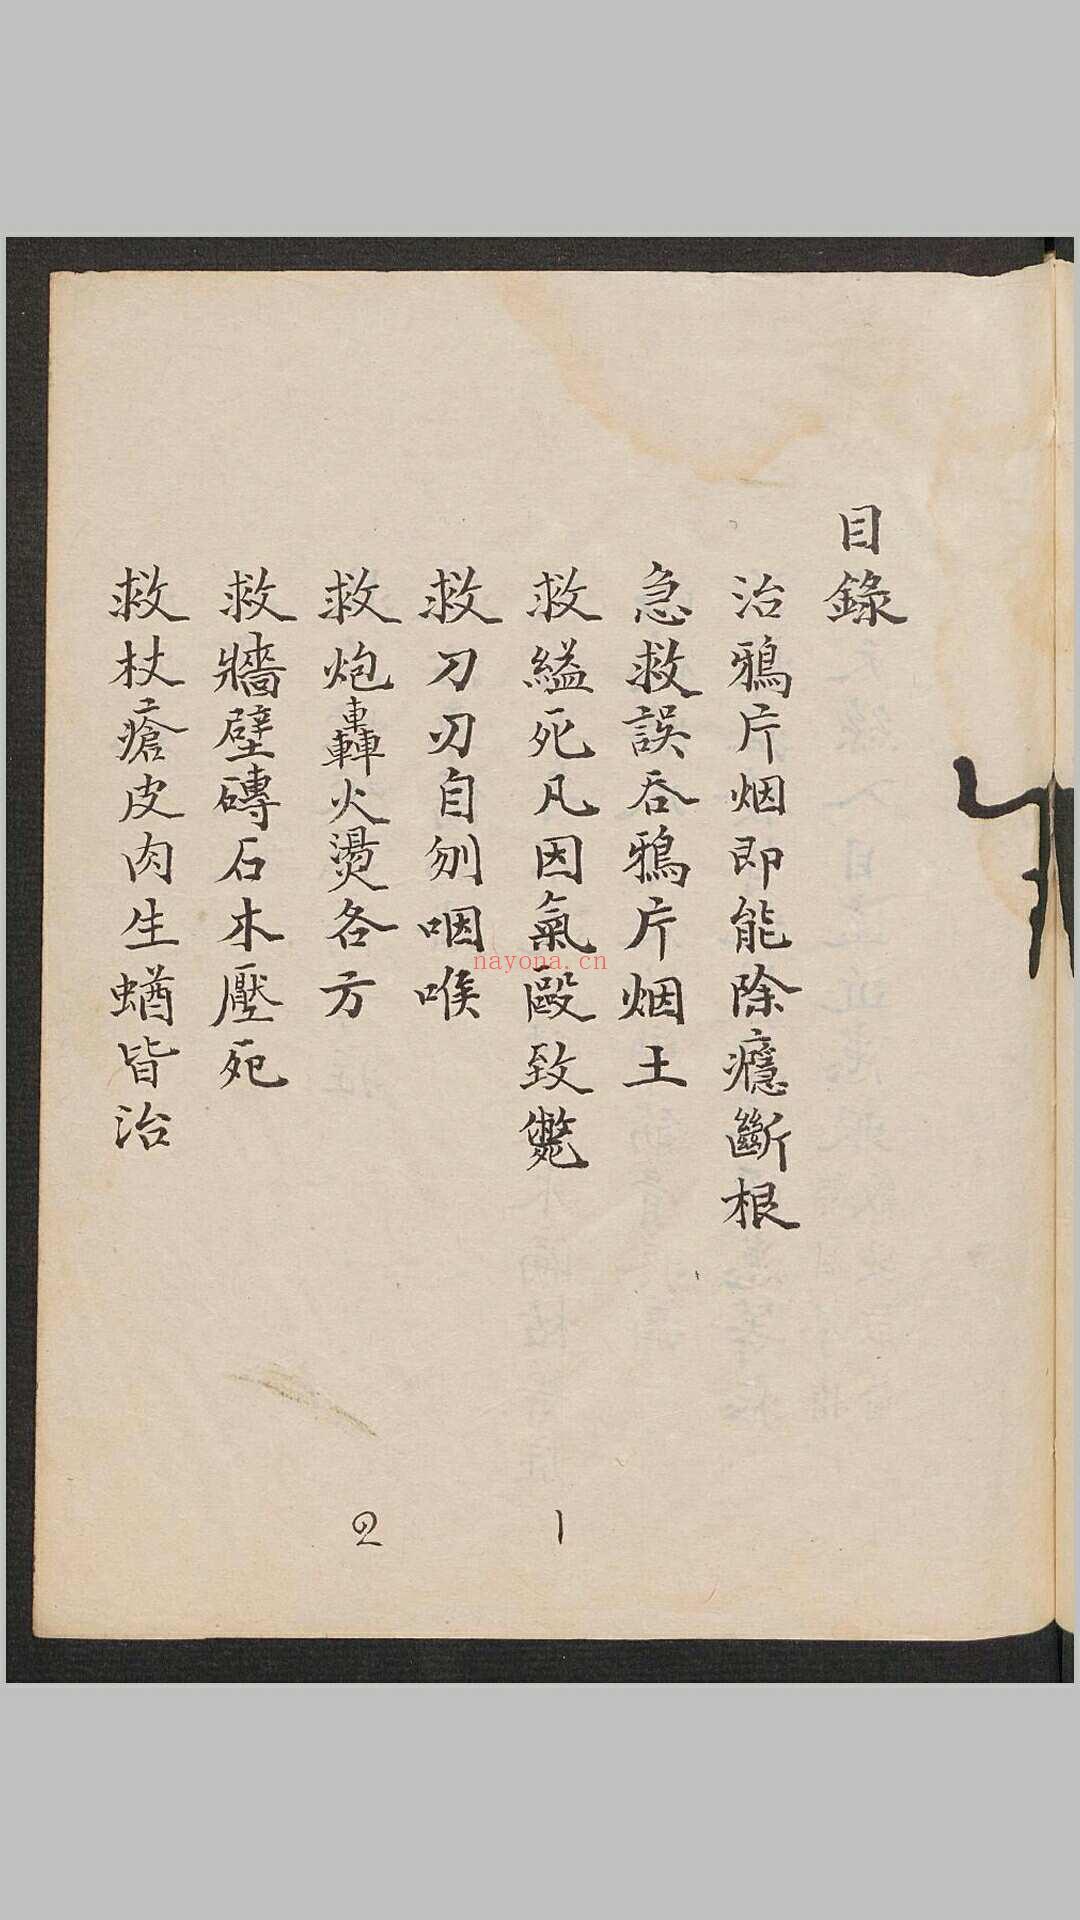 目錄
治鴉片烟即能除癮斷根
急救誤吞鴉片烟土
救縊死凡因氣毆致斃
救刀刃自刎咽喉
救炮轟火燙各方
救牆壁磚石木壓死
救杖瘡皮肉生蝤皆治
nayona.cn
2 1